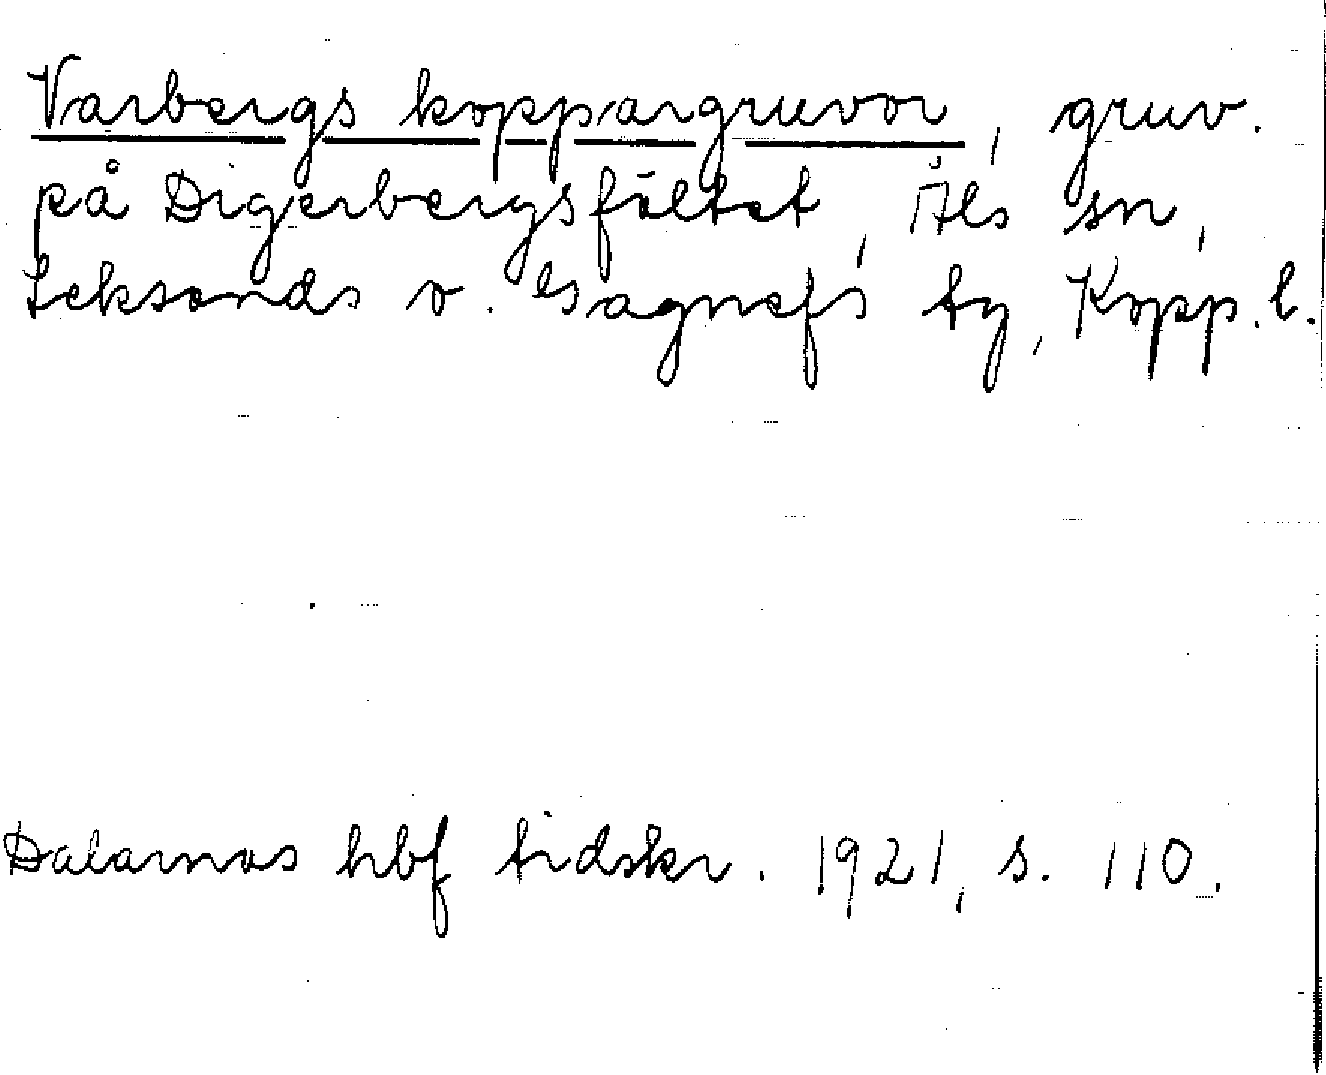 Varbergs koppargruvor, gruv.
på Digerbergsfältet, Åls sn,
Leksands o. Gagnefs tg, Kopp. l.
Dalarnas hbf tidskr. 1921, s. 110.